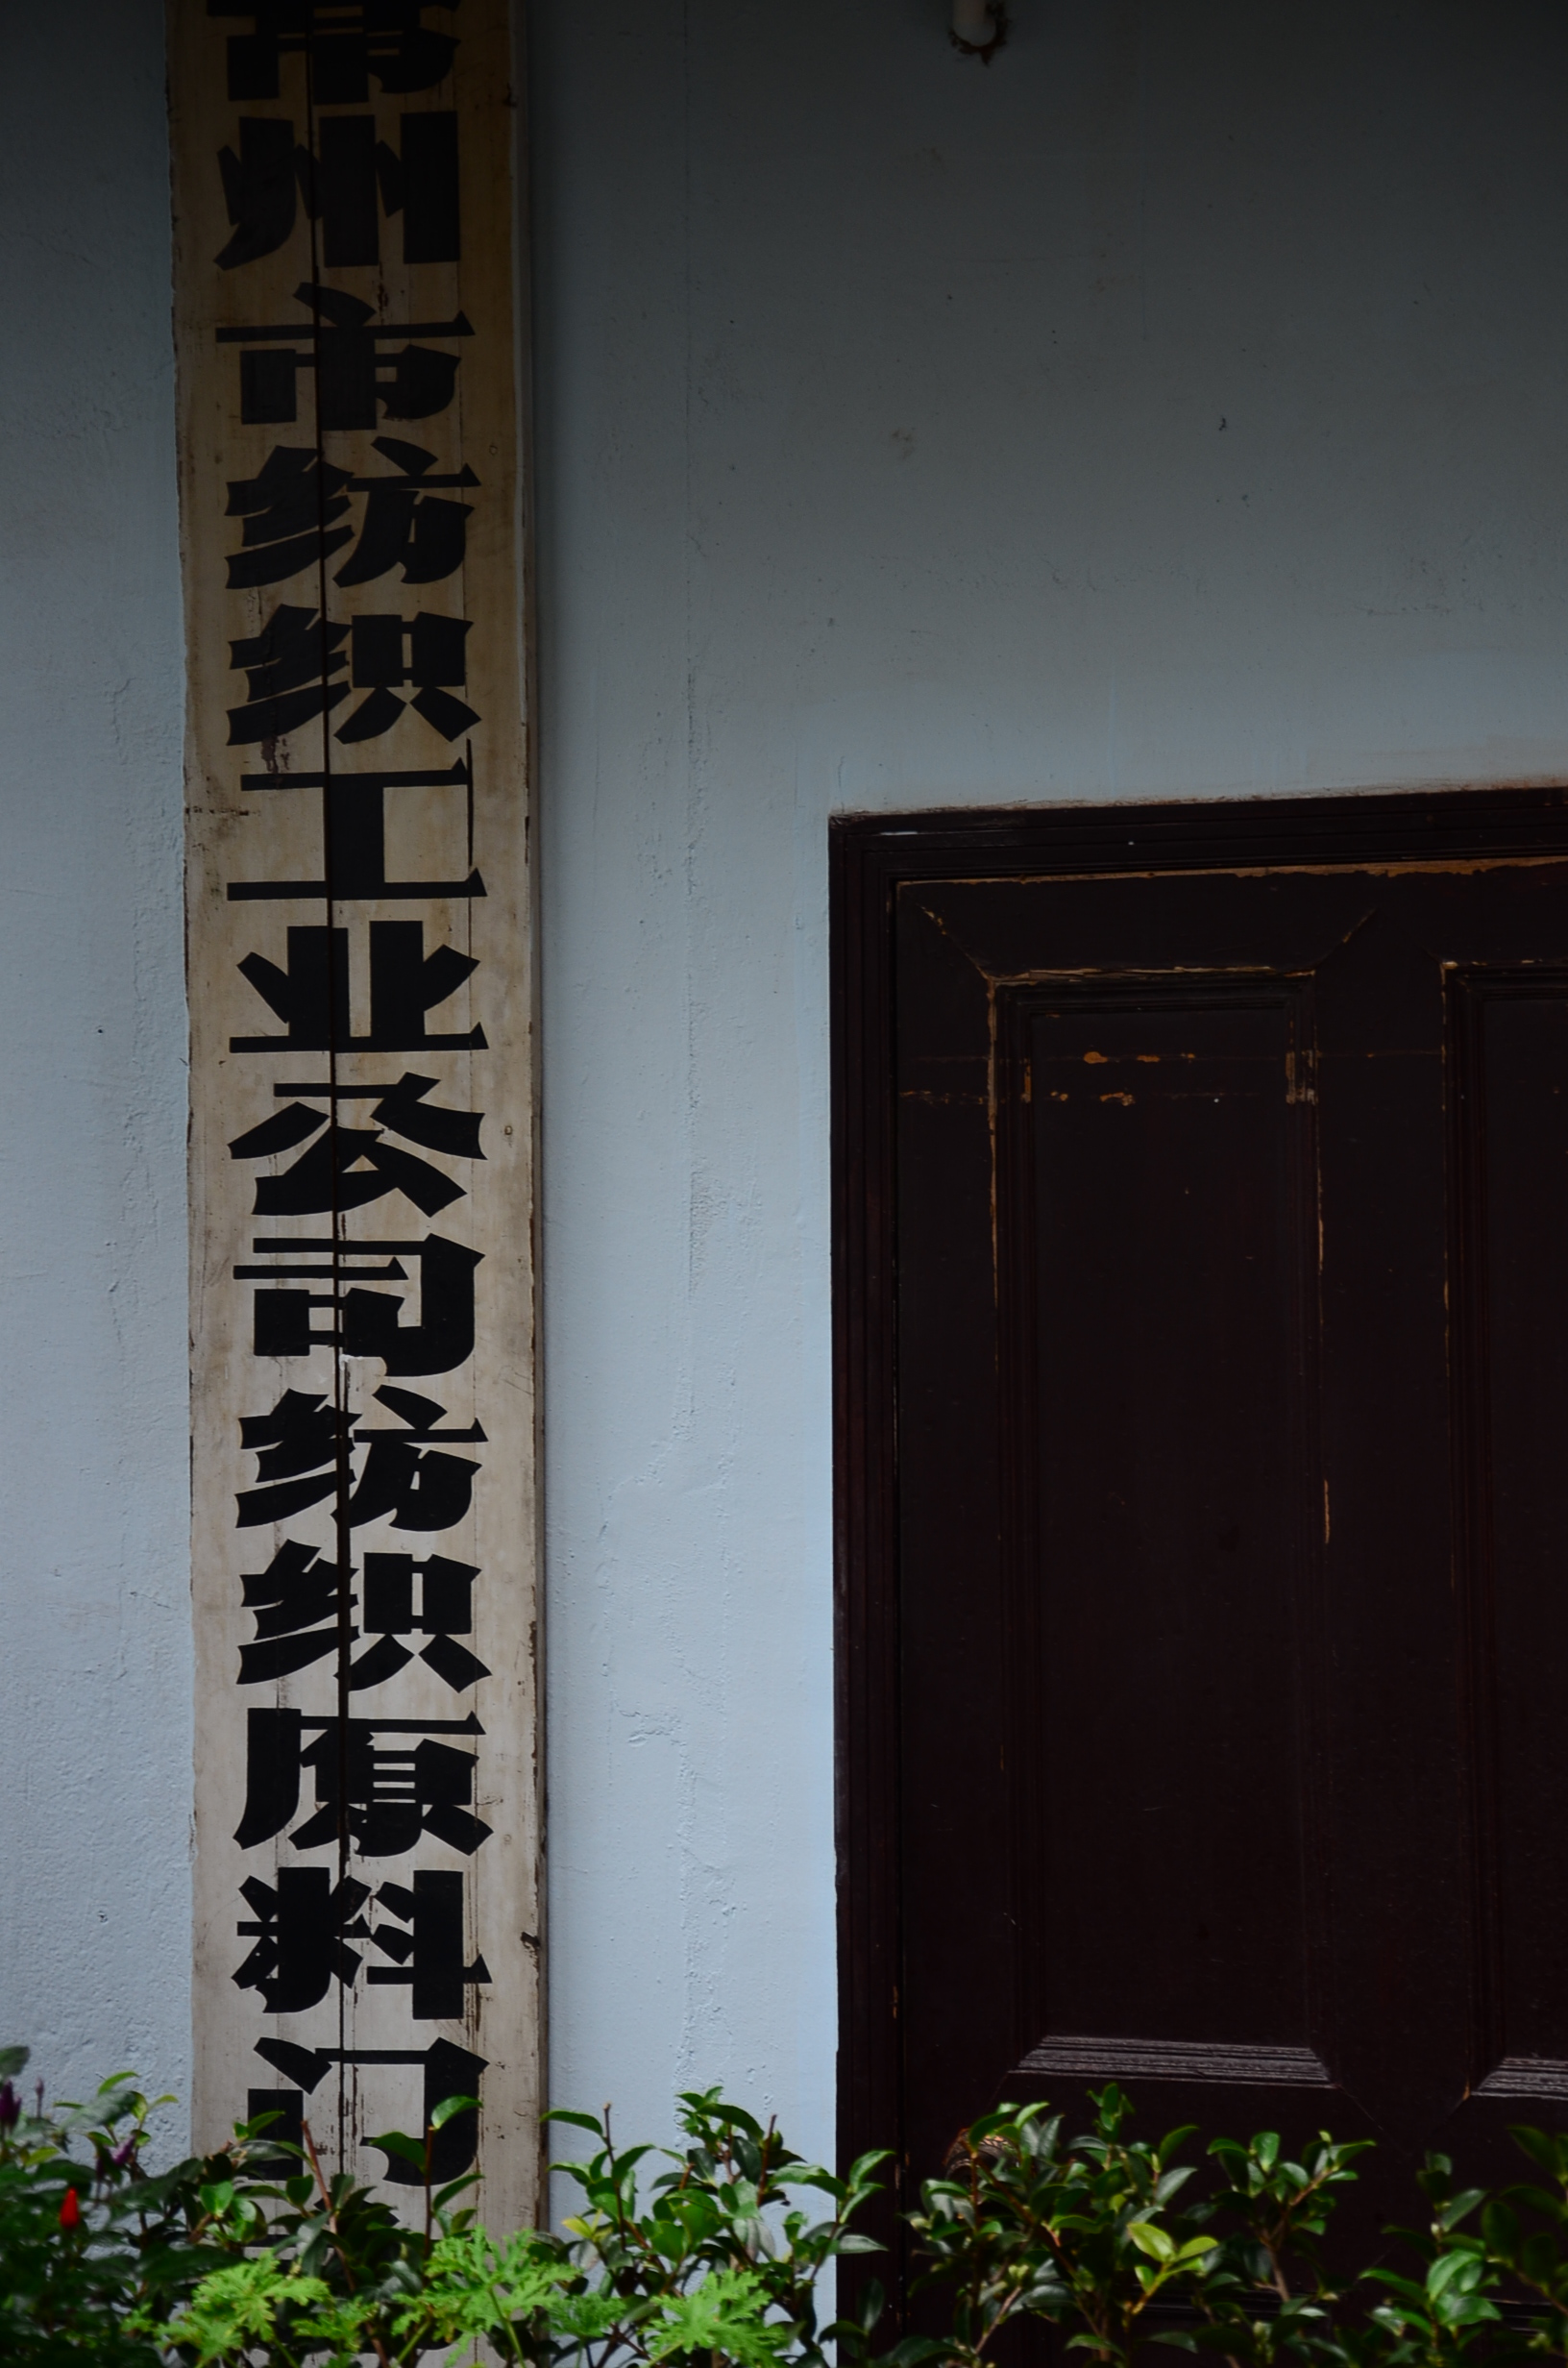 常州市纺织工业公司纺织原料门